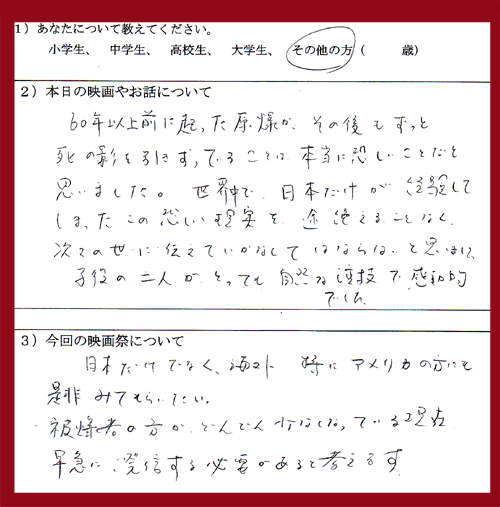 1）あなたについて教えてください。
小学生、 中学生、 高校生、 大学生、 その他の方（ 歳）
2）本日の映画やお話について
60年以上前に起った原爆が、その後もずっと
死の影を引きずっていることは、本当に恐しいことだと
思いました。世界中で、日本だけが経験して
しまったこの恐しい現実を、途絶えることなく、
次の世に伝えていかなくてはならないと思いました
子役の二人が、とっても自然な演技で感動的
でした
3）今回の映画祭について
日本だけでなく、海外 特にアメリカの方にも
是非みてもらいたい。
被爆者の方が、どんどん少なくなっている現在
早急に発信する必要があると考えます